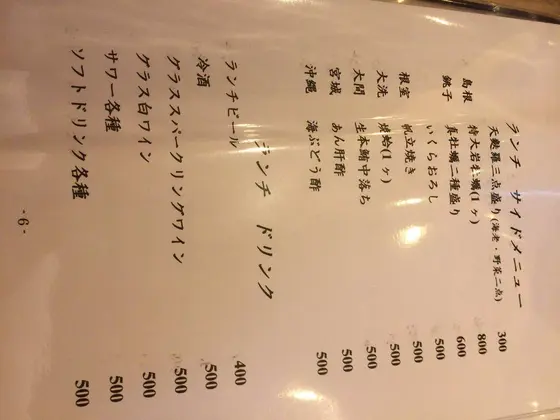 ランチ サイドメニュー
天麩羅三点盛り(海老・野菜二点) 300
島根 特大岩牡蠣(1ヶ) 800
銚子 真牡蠣二種盛り 600
いくらおろし 500
根室 帆立焼き 500
大洗 (1ヶ) 500
大間 生本鮪中落ち 500
宮城 あん肝酢 500
沖縄 海ぶどう酢 500
ランチ ドリンク
ランチビール 400
冷酒 500
グラススパークリングワイン 500
グラス白ワイン 500
サワー各種 500
ソフトドリンク各種 500
- 6 -